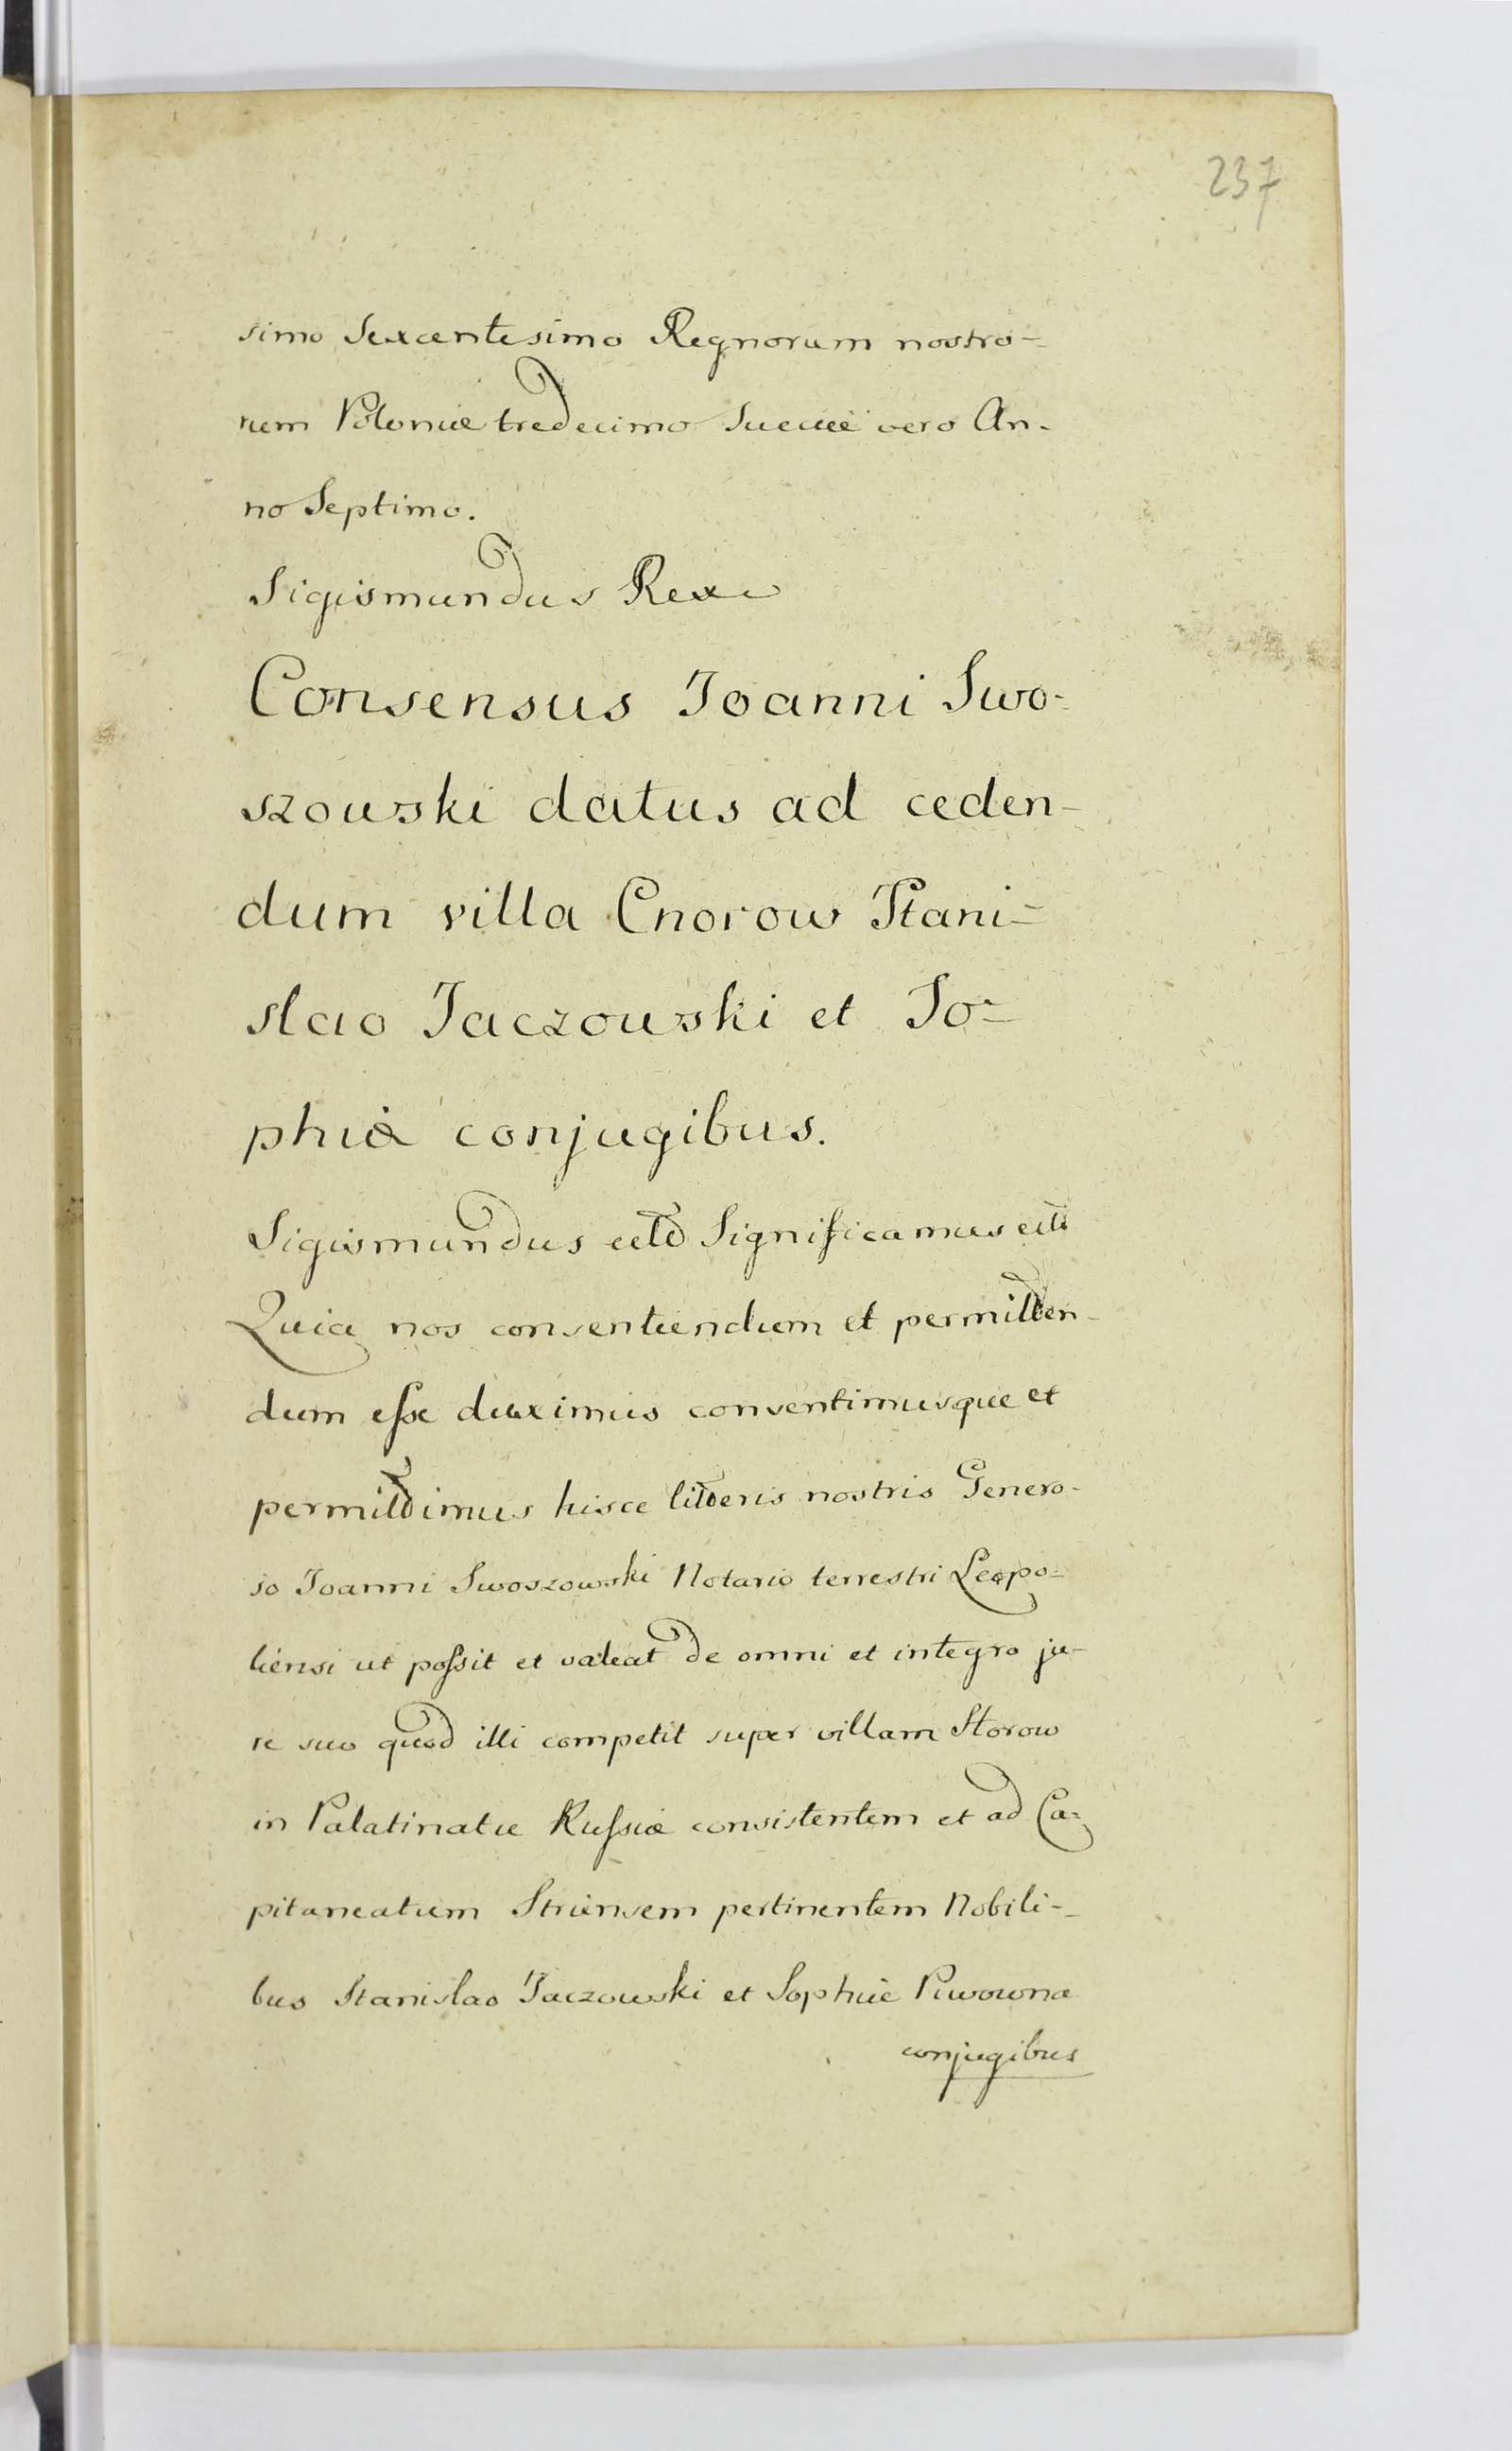 237
simo Sexcentesimo Regnorum nostro-
rum Poloniæ tredecimo Sueciæ vero An-
no Septimo.
Sigismundus Rex
Consensus Joanni Swo-
szowski datus ad ceden-
dum villa Cnorow Stani-
slao Jaczowski et So-
phiæ conjugibus.
Sigismundus etc Significamus etc
Quia nos consentiendum et permitten-
dum esse duximus consentimusque et
permittimus hisce litteris nostris Genero-
so Joanni Swoszowski Notario terrestri Leopo-
liensi ut possit et valeat de omni et integro ju-
re suo quod illi competit super villam Storow
in Palatinatu Russiæ consistentem et ad Ca-
pitaneatum Striensem pertinentem Nobili-
bus Stanislao Jaczowski et Sophiæ Piwowna
conjugibus